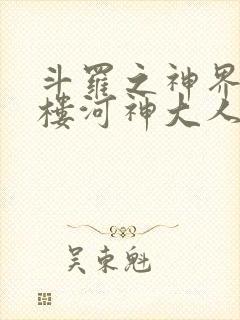 斗羅之神界
樓河神大人
吴東魁